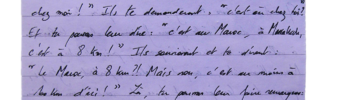 chez moi ! " Ils te demanderont : " c'est où chez toi?
Et tu pourras leur dire : " c'est au Maroc, à Marrakech,
c'est à 8 km ! " Ils souriront et te diront :
" Le Maroc, à 8 km ?! Mais non, c'est au moins à
km d'ici ! " Là, tu pourras leur faire remarquer